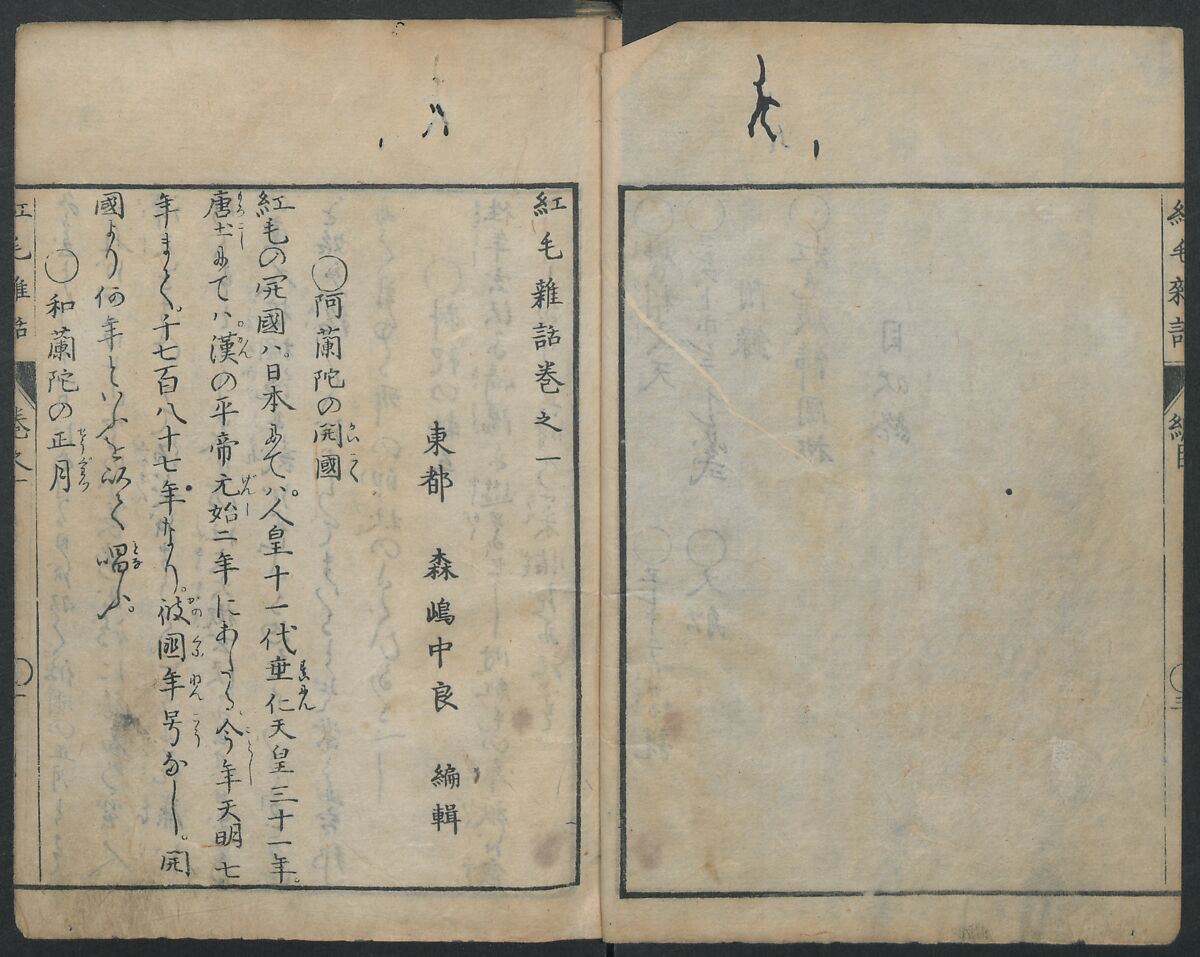 紅毛雜話 總目 〇三
紅毛雜話卷之一
東都 森嶋中良 編輯
〇阿蘭陀の開國
紅毛の開國ハ。日本にてハ。人皇十一代垂仁天皇三十一年。
唐土にてハ。漢の平帝元始二年にあたる。今年天明七
年まて。千七百八十七年なり。彼國年号なし。開
國より何年といふを以て唱ふ。
〇和蘭陀の正月
紅毛雜話 卷之一 〇一